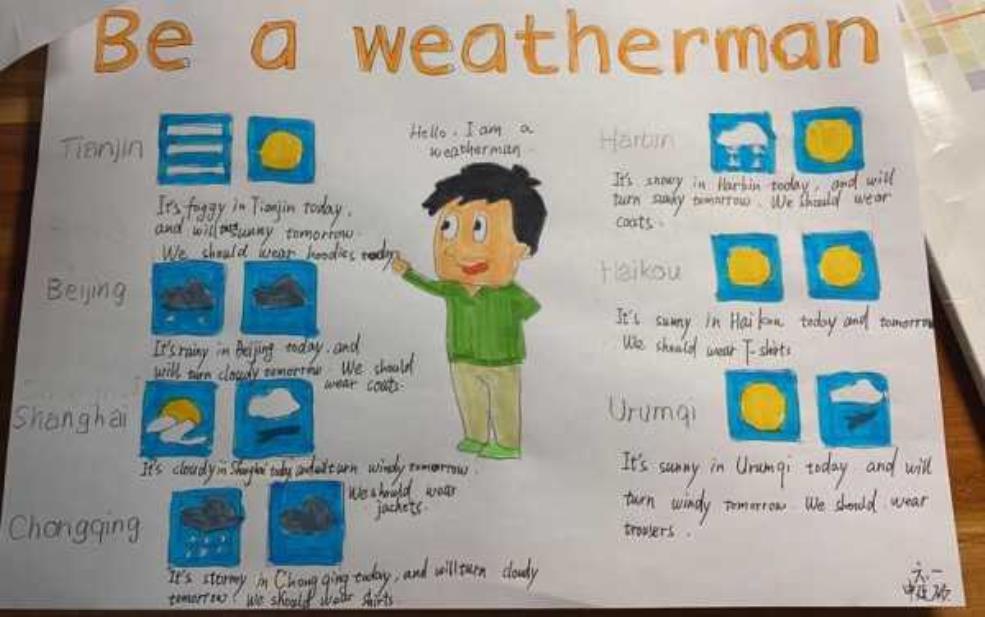 Be a weatherman
Hello. I am a
weatherman.
Tianjin
It's foggy in Tianjin today,
and will sunny tomorrow.
We should wear hoodies today
Beijing
It's rainy in Beijing today, and
will turn cloudy tomorrow. We should
wear coats.
Shanghai
It's cloudy in Shanghai today and will turn windy tomorrow.
We should wear
jackets.
Chongqing
It's stormy in Chongqing today, and will turn cloudy
tomorrow. We should wear shirts
Harbin
It's snowy in Harbin today, and will
turn sunny tomorrow. We should wear
coats.
Haikou
It's sunny in Haikou today and tomorrow
We should wear T-shirts
Urumqi
It's sunny in Urumqi today and will
turn windy tomorrow. We should wear
trousers.
六一